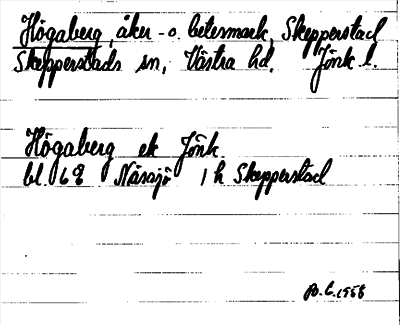 Högaberg, åker- o. betesmark, Skepperstad
Skepperstads sn, Västra hd. Jönk. l.
Högaberg ek Jönk
bl. 68 Nässjö 1 h Skepperstad
1958